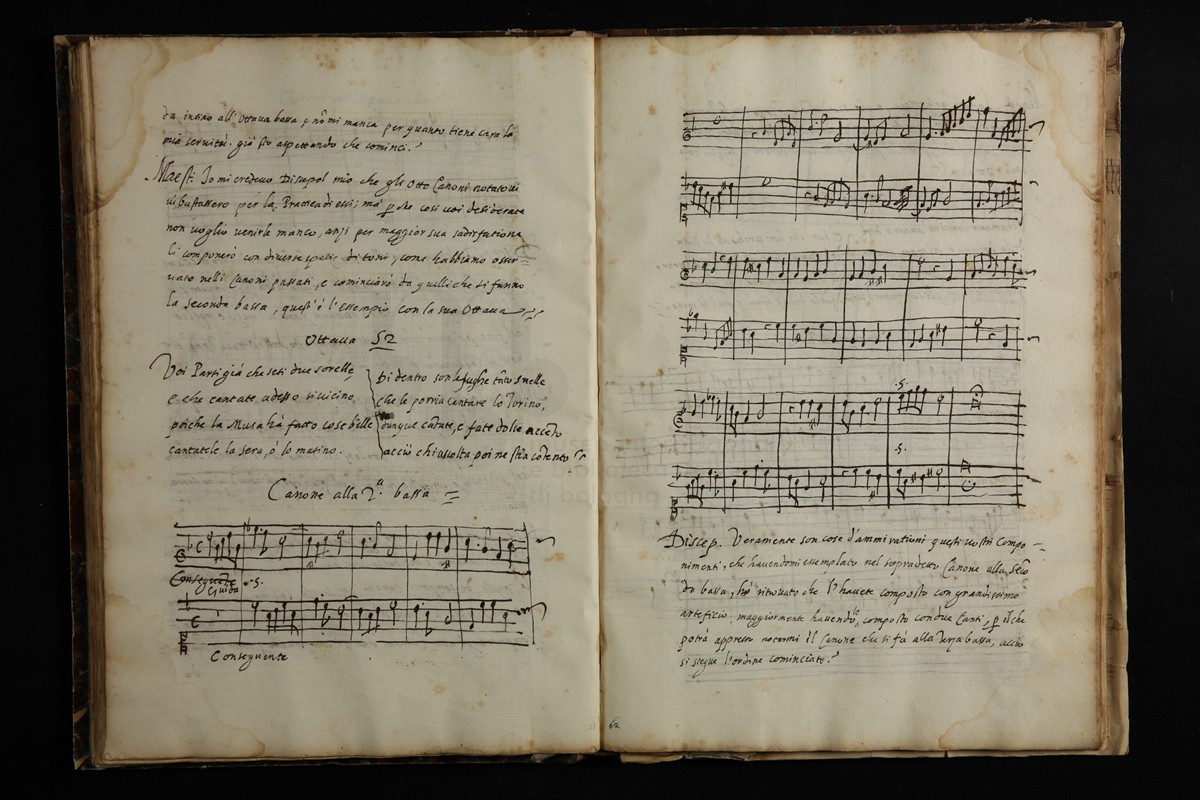 da insino all'ottava bassa, e nō mi manca per quanto tiene cara la
mia servitù. già sto aspettando che cominci.
Maest: Io mi credevo Discepol mio che gli Otto Canoni notatovi
vi bastassero per la Prattica di essi; ma p che così voi desiderate
non voglio venirle manco, anzi per maggior sua sadisfattione
li componerò con diverse spetie di toni, come habbiamo osser
vato nelli Canoni passati, e cominciarò da quelli che si fanno
la seconda bassa, quest'è l'essempio con la sua Ottava
Ottava 52
Voi Parti già che seti due sorelle,
e che cantate adesso sì vicino,
poiche la Musa hà fatto cose belle
cantatele la sera, ò lo matino.
Di dentro son le fughe tāto snelle
che le porria cantare lo Torino,
dunque cātate, e fate dolce accēto
acciò chi ascolta poi ne stia cōtento
Canone alla 2.a bassa
Conseguente
Guida
.5.
Conseguente
62
.5.
.5.
Discep. Veramente son cose d'ammirationi questi vostri Compo
nimenti, che havendomi essemplato nel sopradetto Canone alla seco
da bassa, hò ritrovato che l'havete composto con grandissimo
arteficio, maggiormente havendolo composto con due Canti, p il che
potrà appresso notarmi il Canone che si fà alla Terza bassa, acciò
si siegua l'ordine cominciato.